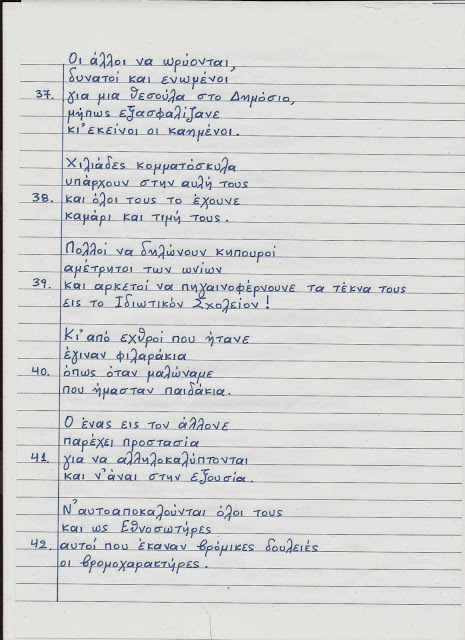 Οι άλλοι να ωρύονται,
δυνατοί και ενωμένοι
37. για μια θεσούλα στο Δημόσιο,
μήπως εξασφαλίζανε
κι' εκείνοι οι καημένοι.
Χιλιάδες κομματόσκυλα
υπάρχουν στην αυλή τους
38. και όλοι τους το έχουνε
καμάρι και τιμή τους.
Πολλοί να δηλώνουν κηπουροί
αμέτρητοι των ωνίων
39. και αρκετοί να πηγαινοφέρνουνε τα τέκνα τους
εις το Ιδιωτικόν Σχολείον!
Κι' από εχθροί που ήτανε
έγιναν φιλαράκια
40. όπως όταν μαλώναμε
που ήμασταν παιδάκια.
Ο ένας εις τον άλλονε
παρέχει προστασία
41. για να αλληλοκαλύπτονται
και ν' άναι στην εξουσία.
Ν' αυτοαποκαλούνται όλοι τους
και ως Εθνοσωτήρες
42. αυτοί που έκαναν βρόμικες δουλειές
οι βρομοχαρακτήρες.